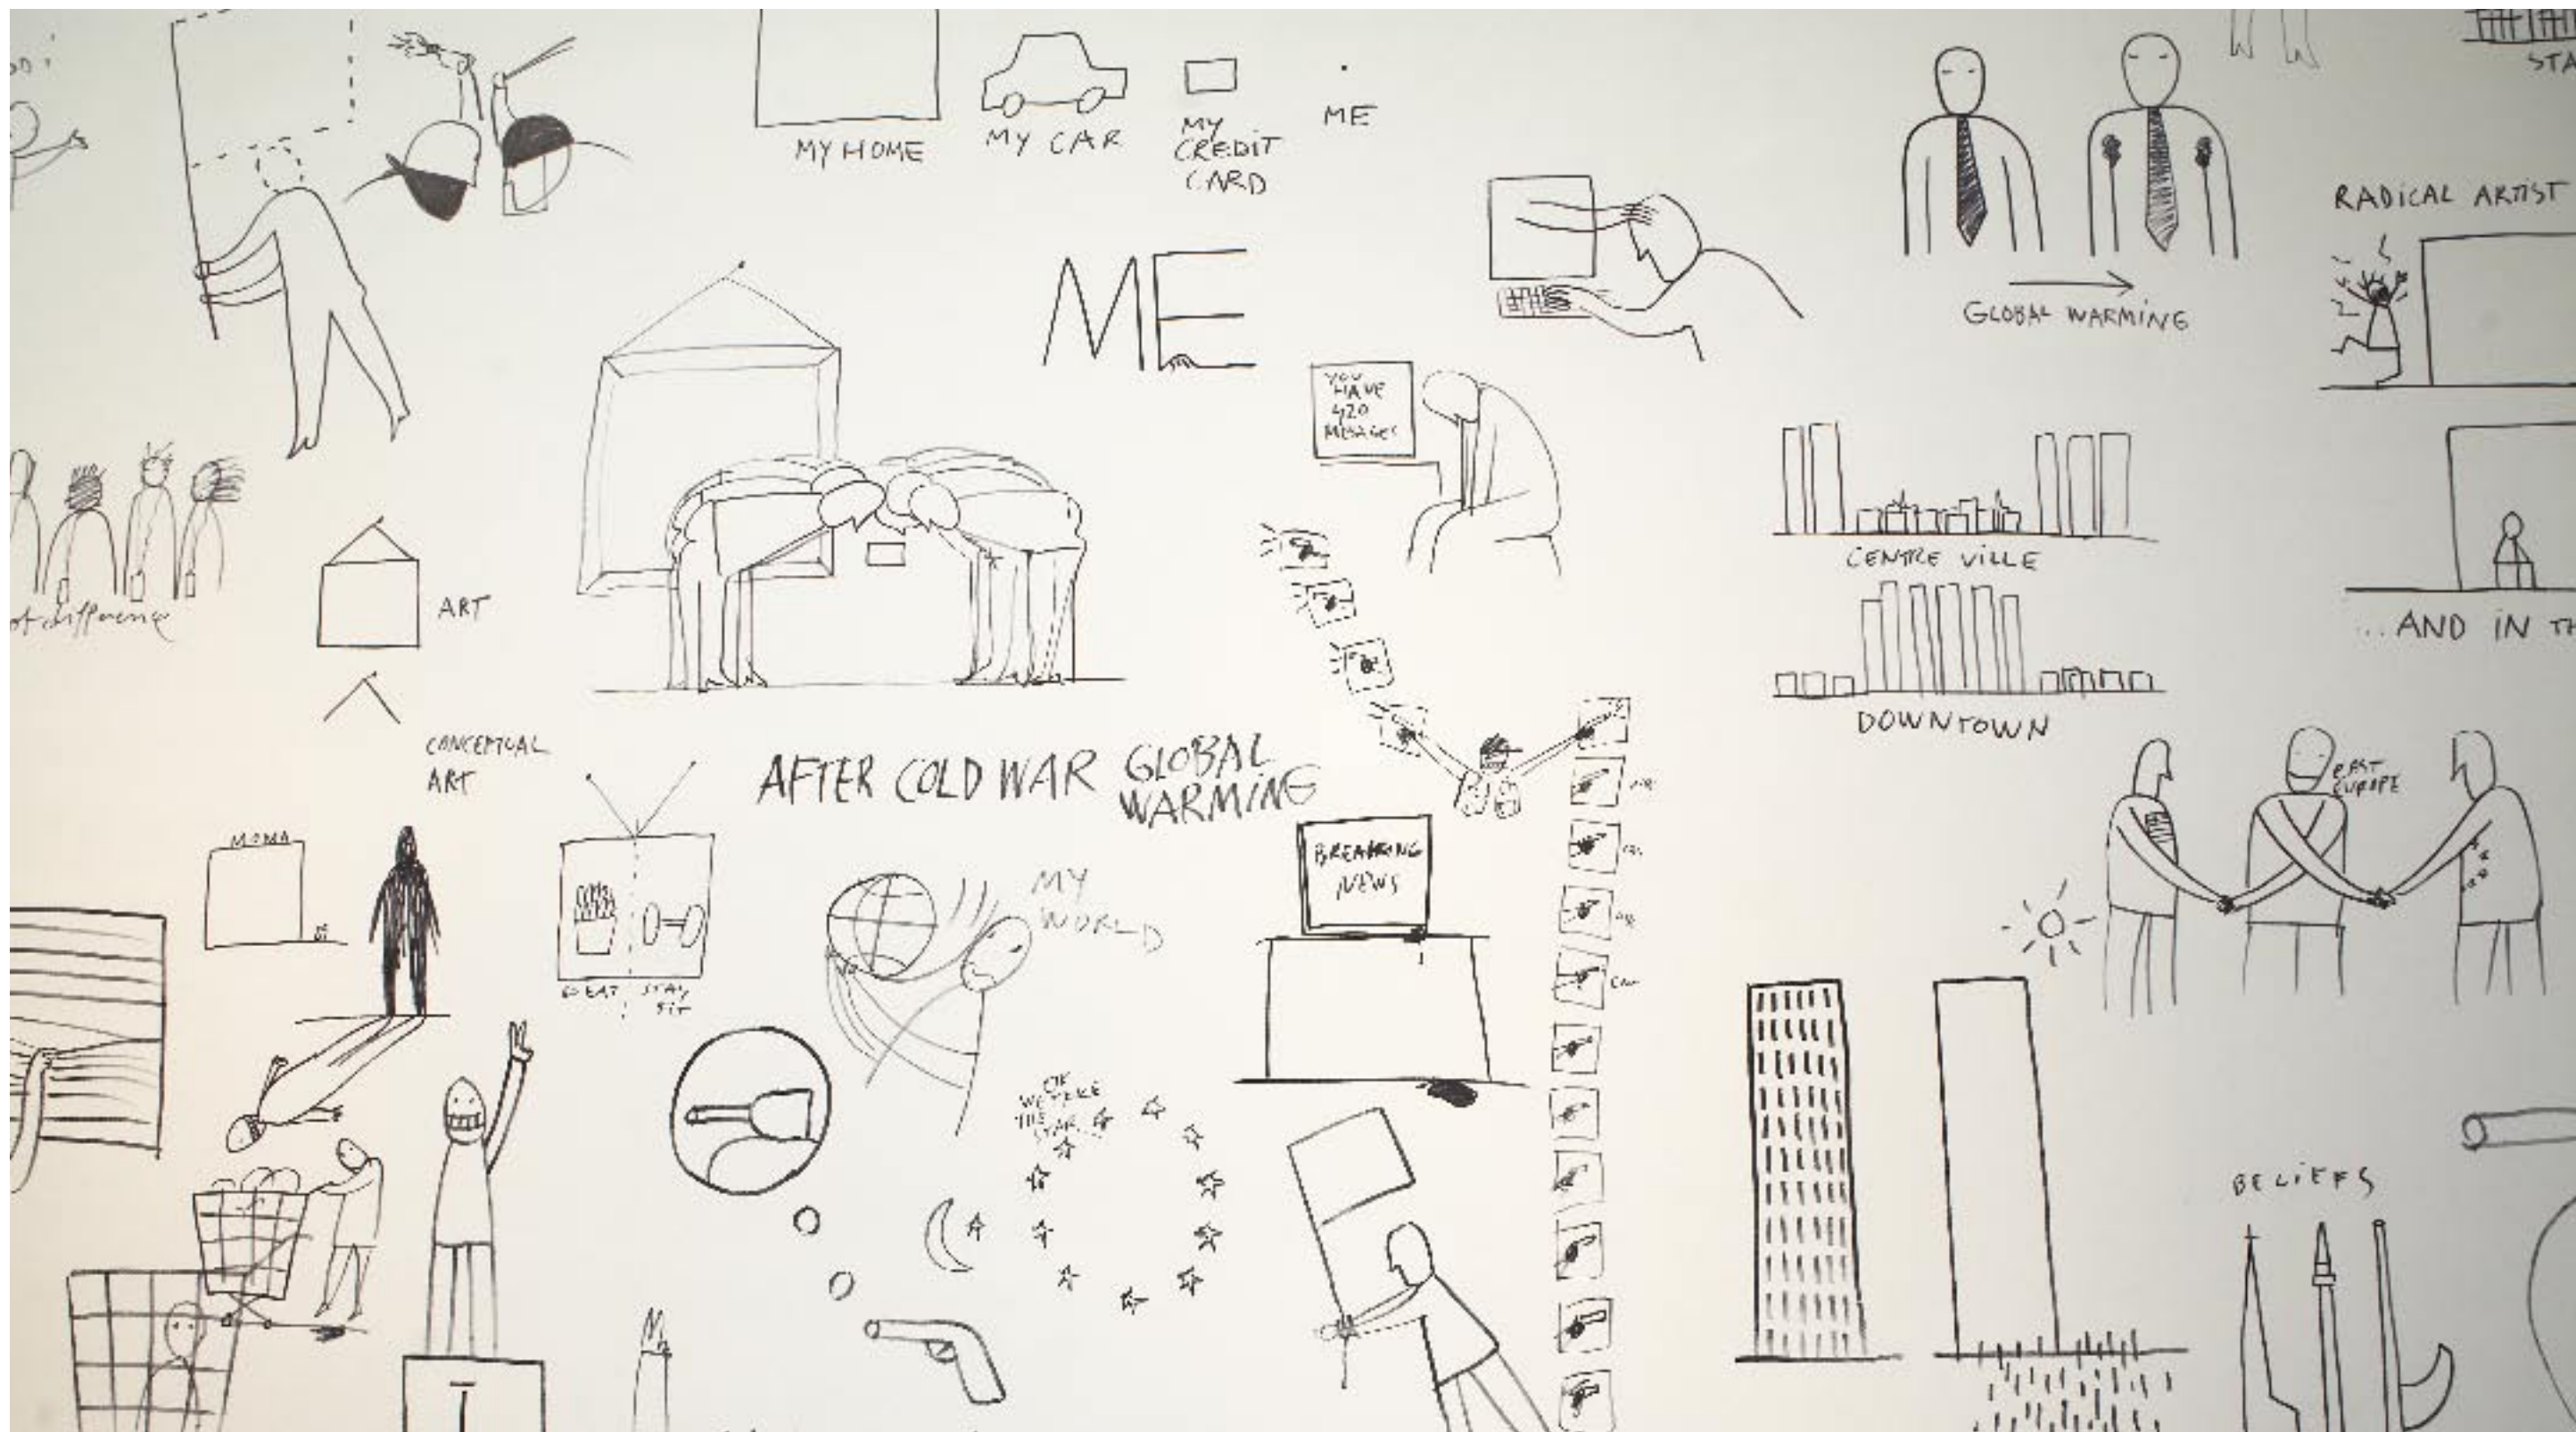 MY HOME
MY CAR
MY
CREDIT
CARD
ME
STA
RADiCAL ARTiST
GLOBAL WARMiNG
ME
YOU
HAVE
420
MESAGES
CENTRE ViLLE
DOWNTOWN
...AND iN TH
of difference
ART
CONCEPTUAL
ART
AFTER COLD WAR GLOBAL
WARMiNG
EAST
EUROPE
MOMA
BREAKING
NEWS
MY
WORLD
GO EAT STAY
SiT
BELiEFS